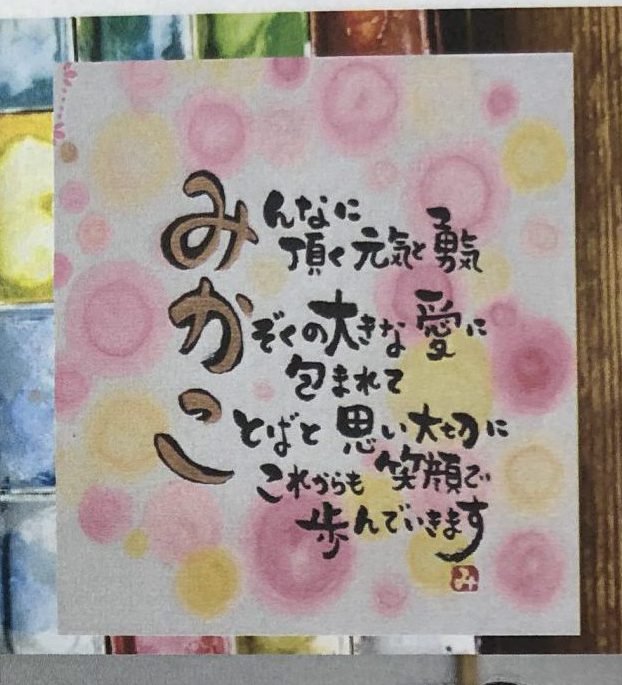 みんなに
頂く元気と勇気
かぞくの大きな愛に
包まれて
ことばと思い大切に
これからも笑顔で
歩んでいきます
み